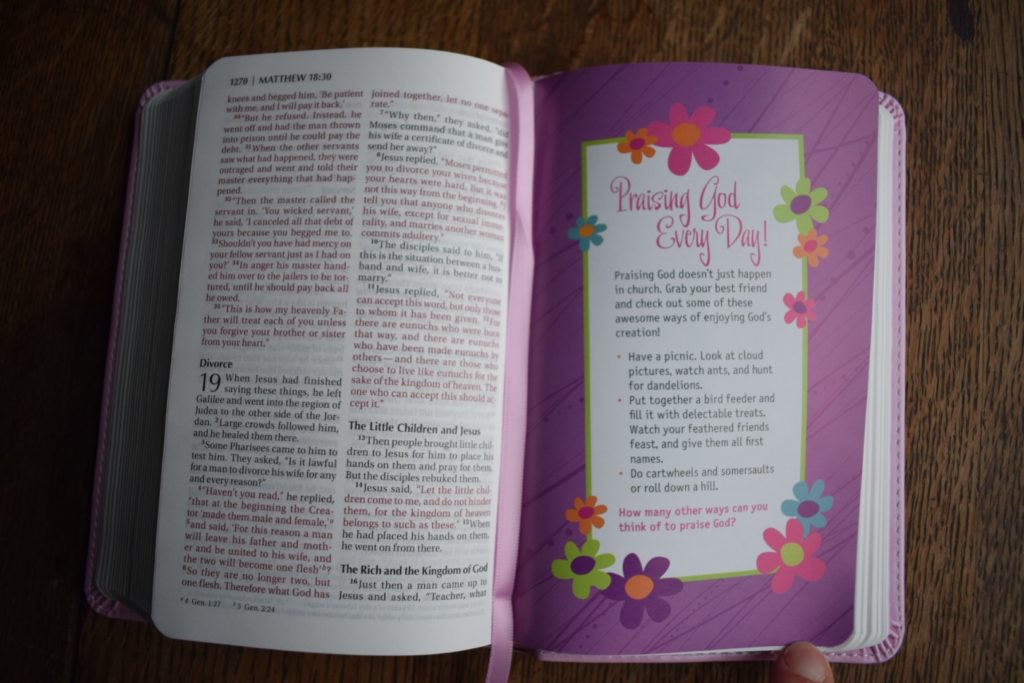 1270 | MATTHEW 18:30
knees and begged him, ‘Be patient
with me, and I will pay it back.’
30“But he refused. Instead, he
went off and had the man thrown
into prison until he could pay the
debt. 31When the other servants
saw what had happened, they were
outraged and went and told their
master everything that had hap-
pened.
32“Then the master called the
servant in. ‘You wicked servant,’
he said, ‘I canceled all that debt of
yours because you begged me to.
33Shouldn’t you have had mercy on
your fellow servant just as I had on
you?’ 34In anger his master hand-
ed him over to the jailers to be tor-
tured, until he should pay back all
he owed.
35“This is how my heavenly Fa-
ther will treat each of you unless
you forgive your brother or sister
from your heart.”
Divorce
19 When Jesus had finished
saying these things, he left
Galilee and went into the region of
Judea to the other side of the Jor-
dan. 2Large crowds followed him,
and he healed them there.
3Some Pharisees came to him to
test him. They asked, “Is it lawful
for a man to divorce his wife for any
and every reason?”
4“Haven’t you read,” he replied,
“that at the beginning the Crea-
tor ‘made them male and female,’a
5and said, ‘For this reason a man
will leave his father and moth-
er and be united to his wife, and
the two will become one flesh’b?
6So they are no longer two, but
one flesh. Therefore what God has
a 4 Gen. 1:27 b 5 Gen. 2:24
joined together, let no one
rate.”
7“Why then,” they asked, “did
Moses command that a man give
his wife a certificate of divorce and
send her away?”
8Jesus replied, “Moses permitted
you to divorce your wives because
your hearts were hard. But it was
not this way from the beginning. 9I
tell you that anyone who divorces
his wife, except for sexual immo-
rality, and marries another woman
commits adultery.”
10The disciples said to him, “If
this is the situation between a hus-
band and wife, it is better not to
marry.”
11Jesus replied, “Not everyone
can accept this word, but only those
to whom it has been given. 12For
there are eunuchs who were born
that way, and there are eunuchs
who have been made eunuchs by
others—and there are those who
choose to live like eunuchs for the
sake of the kingdom of heaven. The
one who can accept this should ac-
cept it.”
The Little Children and Jesus
13Then people brought little chil-
dren to Jesus for him to place his
hands on them and pray for them.
But the disciples rebuked them.
14Jesus said, “Let the little chil-
dren come to me, and do not hinder
them, for the kingdom of heaven
belongs to such as these.” 15When
he had placed his hands on them,
he went on from there.
The Rich and the Kingdom of God
16Just then a man came up to
Jesus and asked, “Teacher, what
Praising God
Every Day!
Praising God doesn’t just happen
in church. Grab your best friend
and check out some of these
awesome ways of enjoying God’s
creation!
• Have a picnic. Look at cloud
pictures, watch ants, and hunt
for dandelions.
• Put together a bird feeder and
fill it with delectable treats.
Watch your feathered friends
feast, and give them all first
names.
• Do cartwheels and somersaults
or roll down a hill.
How many other ways can you
think of to praise God?